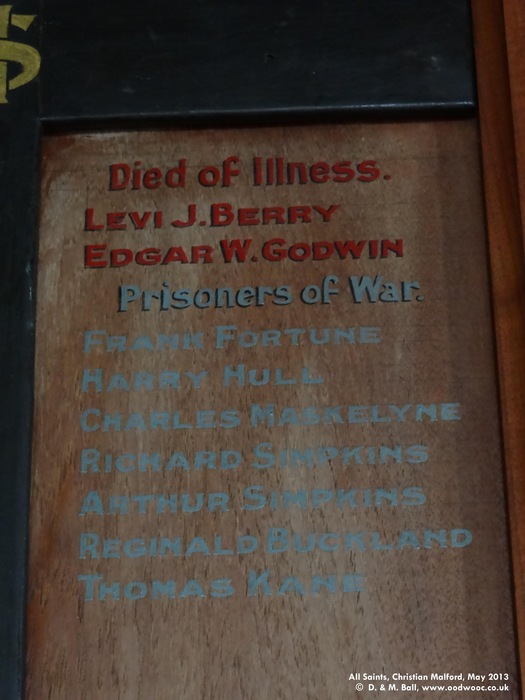 Died of Illness.
LEVI J. BERRY
EDGAR W. GODWIN
Prisoners of War.
FRANK FORTUNE
HARRY HULL
CHARLES MASKELYNE
RICHARD SIMPKINS
ARTHUR SIMPKINS
REGINALD BUCKLAND
THOMAS KANE
All Saints, Christian Malford, May 2013
© D. & M. Ball, www.oodwooc.co.uk